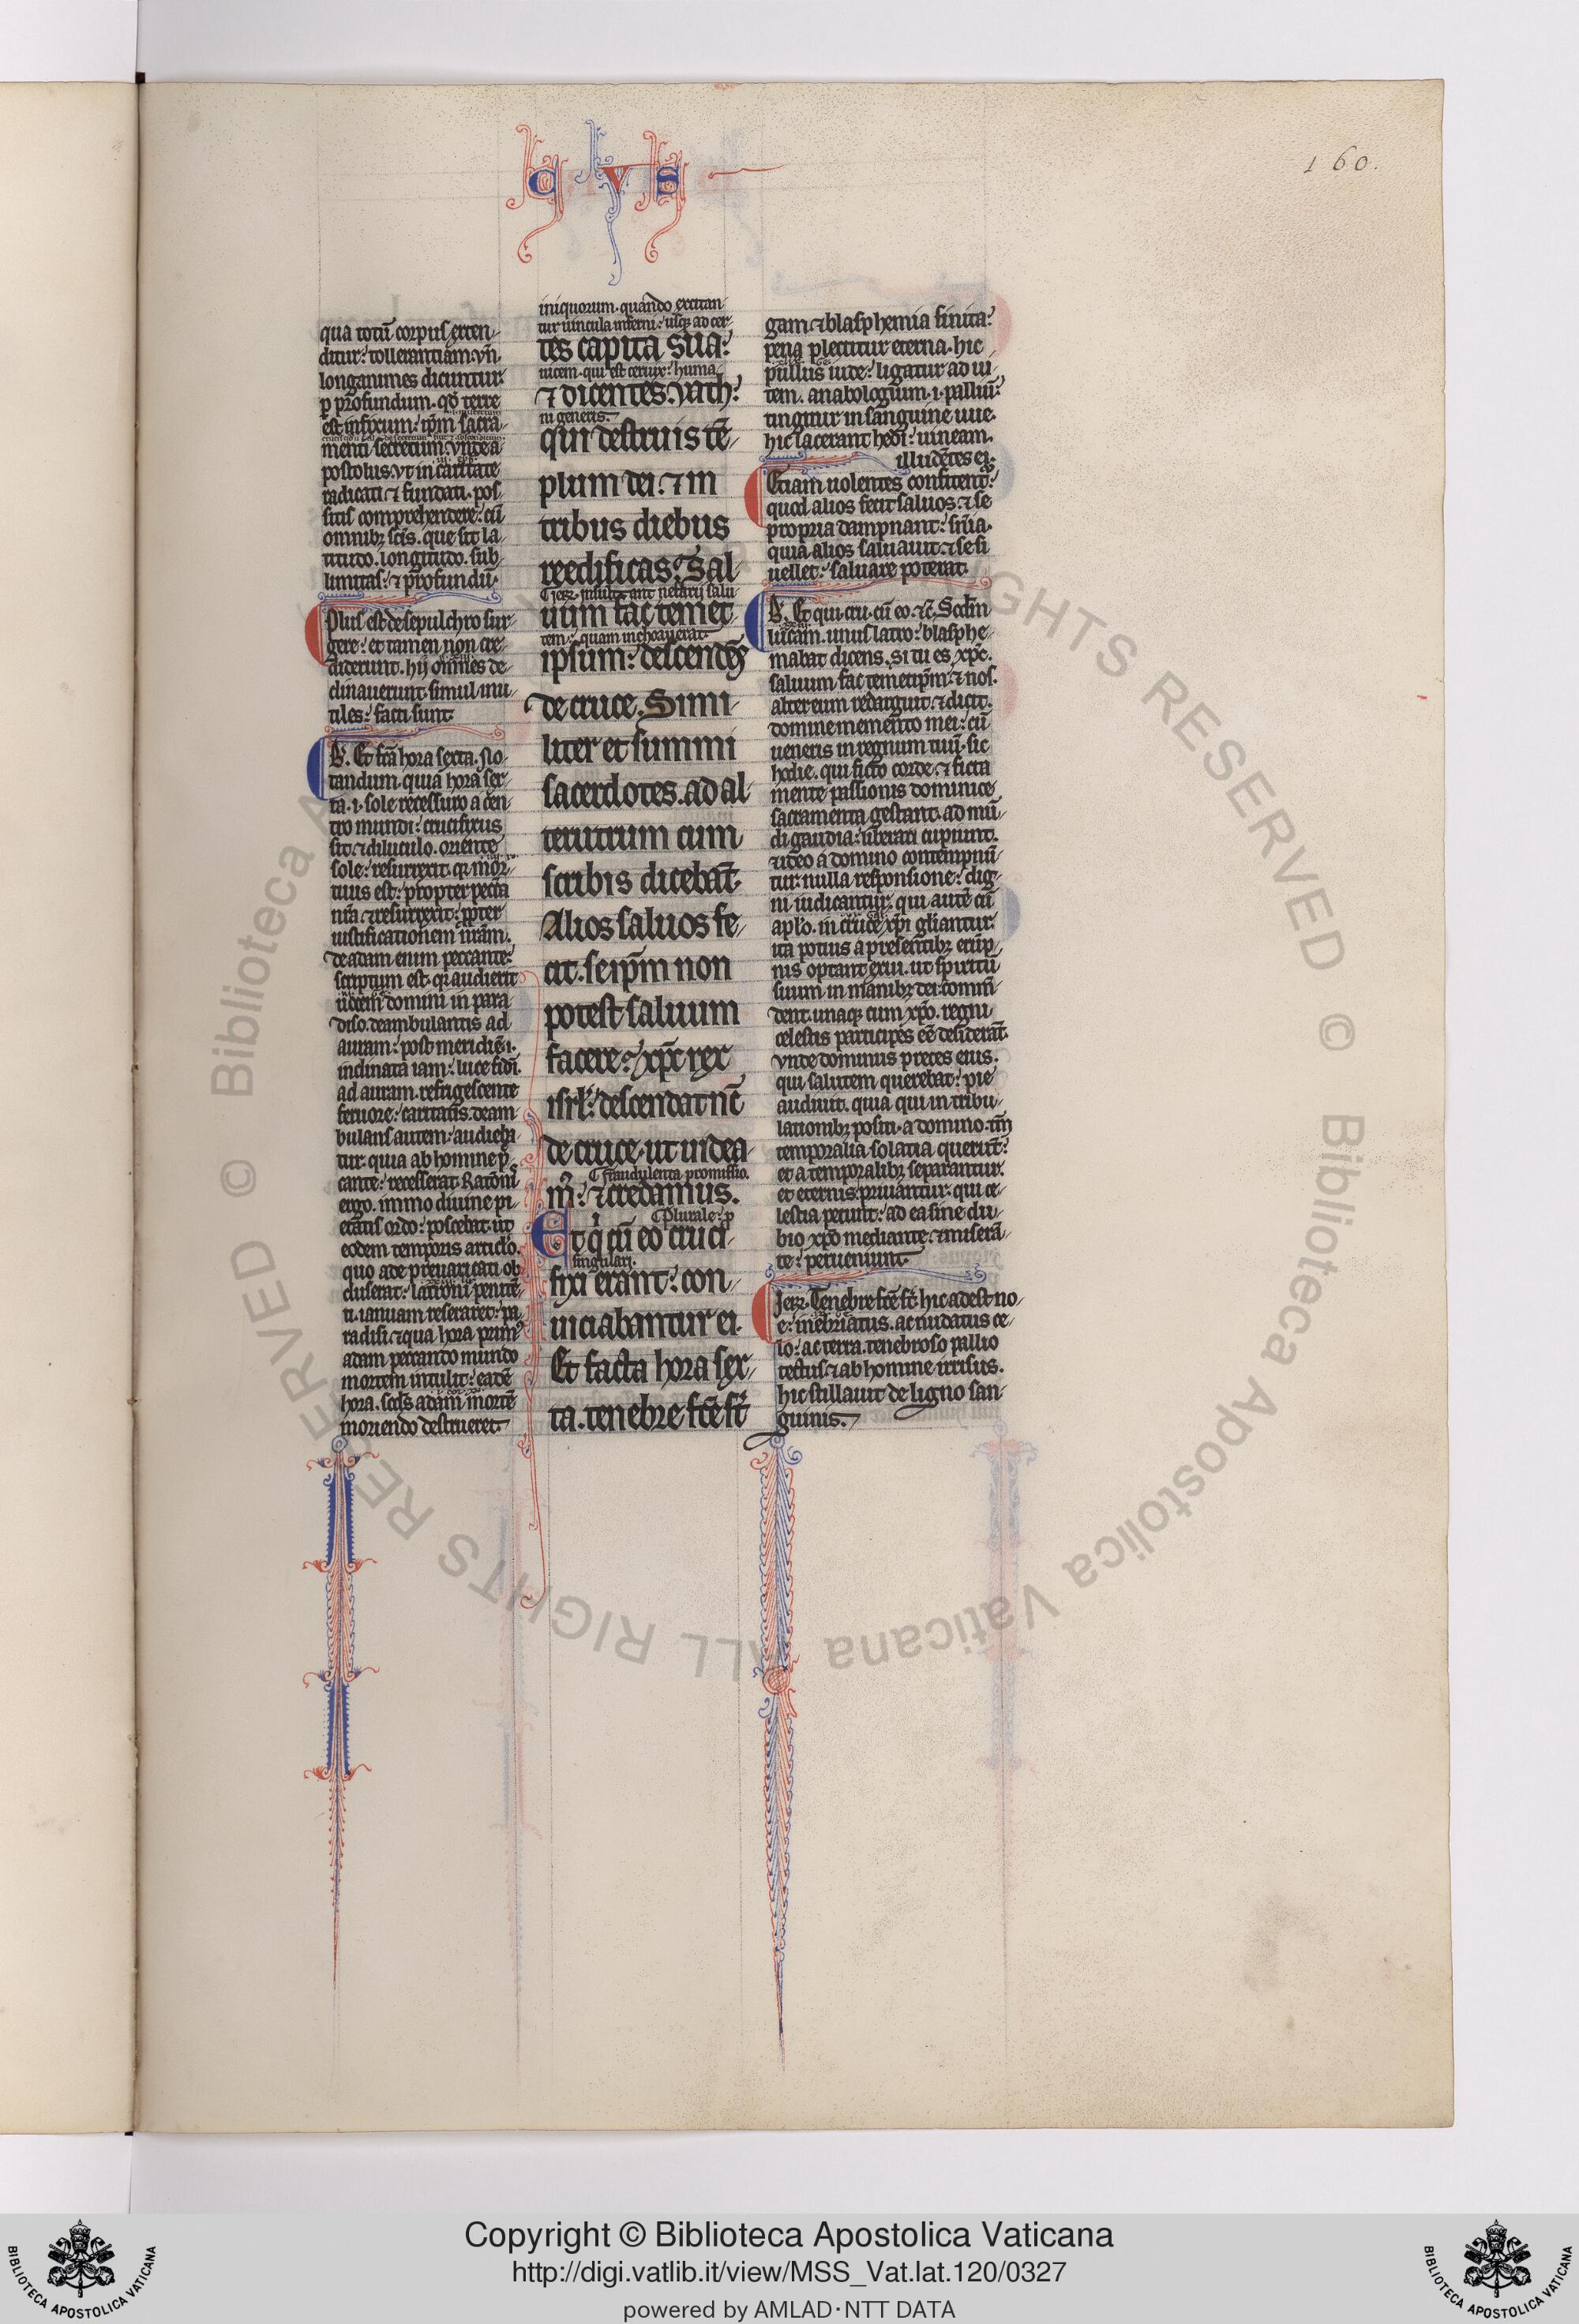 c v s
160.
qua totū corpus exten-
ditur: tollerantiam. vn̄
longanimes dicuntur.
p profundum. qd̄ terre
est infixum: ip̄m sacra-
menti secretum. vnde a-
postolus. vt in caritate
radicati ⁊ fundati. pos-
sitis comprehendere: cū
omnibꝫ sc̄is. que sit la-
titudo. longitudo. sub-
limitas: ⁊ profundū.
Plus est de sepulchro sur-
gere: et tamen non cre-
diderunt. hij omnes de-
clinauerunt simul inu-
tiles: facti sunt.
B. Et fc̄a hora sexta. No-
tandum. quia hora sex-
ta. i. sole recessuro a cen-
tro mundi: crucifixus
sit. ⁊ diluculo. oriente
sole: resurrexit. qꝛ mor-
tuus est: propter pecc̄a
nr̄a. ⁊ resurrexit: ꝓpter
iustificationem nr̄am.
de adam enim peccante:
scriptum est. qꝛ audierit
uocem domini in para-
diso. deambulantis ad
auram: post meridiē. i.
inclinata iam: luce fidei.
ad auram. refrigescente
feruore: caritatis. deam-
bulans autem: audieba-
tur. quia ab homine pec-
cante: recesserat. Ratōnis
ergo. immo diuine pi-
etatis ordo: poscebat. ut
eodem temporis articlo.
quo ade preuaricati ob-
duserat: latroni peniten-
ti. ianuam reseraret: pa-
radisi. ⁊ qua hora primꝰ
adam peccando mundo
mortem intulit: eadē
hora. scd̄s adam mortē
moriendo destrueret.
iniquorum. quando excitan-
tur uincula inferni: usqꝫ ad cer-
tes capita sua:
uicem. qui est ceruix: huma-
⁊ dicentes. Vath:
ni generis.
qui destruis tē-
plum dei. ⁊ in
tribus diebus
reedificas: Sal-
uum fac temet-
tem: quam inchoauerat.
ipsum: descendēs
de cruce. Simi-
liter et summi
sacerdotes. ad al-
terutrum cum
scribis dicebāt.
Alios saluos fe-
cit. seip̄m non
potest saluum
facere: xp̄c rex
isrl̄: descendat nc̄
de cruce. ut uidea-
fraudulenta promissio.
mꝰ: ⁊ credamus.
Plurale: p
Et q̄ cū eo cruci-
singulari.
fixi erant: con-
uiciabantur ei.
Et facta hora sex-
ta. tenebre fc̄e st̄
gam. ⁊ blasphemia finita:
pena plectitur eterna. hic
pullus iude: ligatur ad ui-
tem. anabologium. i. palliū:
tingitur in sanguine uue.
hic lacerant hedi: uineam.
illudētes ei.
Etiam nolentes confitent̄:
quod alios fecit saluos. ⁊ se
propria dampnant: sn̄ia.
quia alios saluauit. ⁊ se si
uellet: saluare poterat.
B. Et qui cru. cū eo. ⁊c̄. Scd̄m
lucam. unus latro: blasphe-
mabat dicens. si tu es xp̄c.
saluum fac temetip̄m: ⁊ nos.
alter eum redarguit. ⁊ dicit.
domine memento mei: cū
ueneris in regnum tuū. sic
hodie. qui ficto corde. ⁊ ficta
mente passionis dominice
sacramenta gestant. ad mū-
di gaudia: liberari cupiunt.
⁊ ideo a domino contempnū-
tur: nulla responsione: dig-
ni iudicantur. qui autē cū
aplo. in cruce xp̄i gliantur:
ita potius a presentibꝫ erūp-
nis optant exui. ut spiritū
suum in manibꝫ dei: comm̄-
dent. unaqꝫ cum xp̄o. regni
celestis participes eē desiderāt.
vnde dominus preces eius.
qui salutem querebat: pie
audiuit. quia qui in tribu-
lationibꝫ positi. a domino. tm̄
temporalia solatia querūt:
et a temporalibꝫ separantur.
et eternis priuantur. qui ce-
lestia petunt: ad ea sine du-
bio xp̄o mediante. ⁊ miserā-
te: perueniunt.
Jerꝫ. Tenebre fc̄e st̄. hic adest no-
e: inebriatus. ac nudatus ce-
lo: ac terra. tenebroso pallio
tectus. ⁊ ab homine irrisus.
hic stillauit de ligno san-
guinis.
Copyright © Biblioteca Apostolica Vaticana
http://digi.vatlib.it/view/MSS_Vat.lat.120/0327
powered by AMLAD·NTT DATA
BIBLIOTECA APOSTOLICA VATICANA
BIBLIOTECA APOSTOLICA VATICANA
© Biblioteca Apostolica Vaticana ALL RIGHTS RESERVED